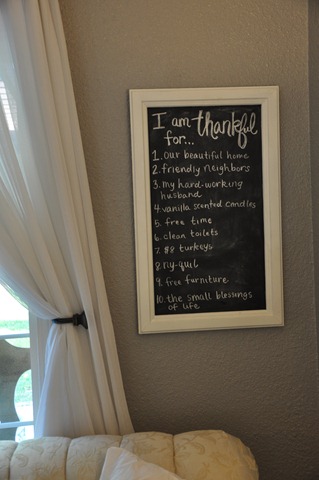 I am thankful
for...
1. our beautiful home
2. friendly neighbors
3. my hard-working
husband
4. vanilla scented candles
5. free time
6. clean toilets
7. $8 turkeys
8. ny-quil
9. free furniture
10. the small blessings
of life